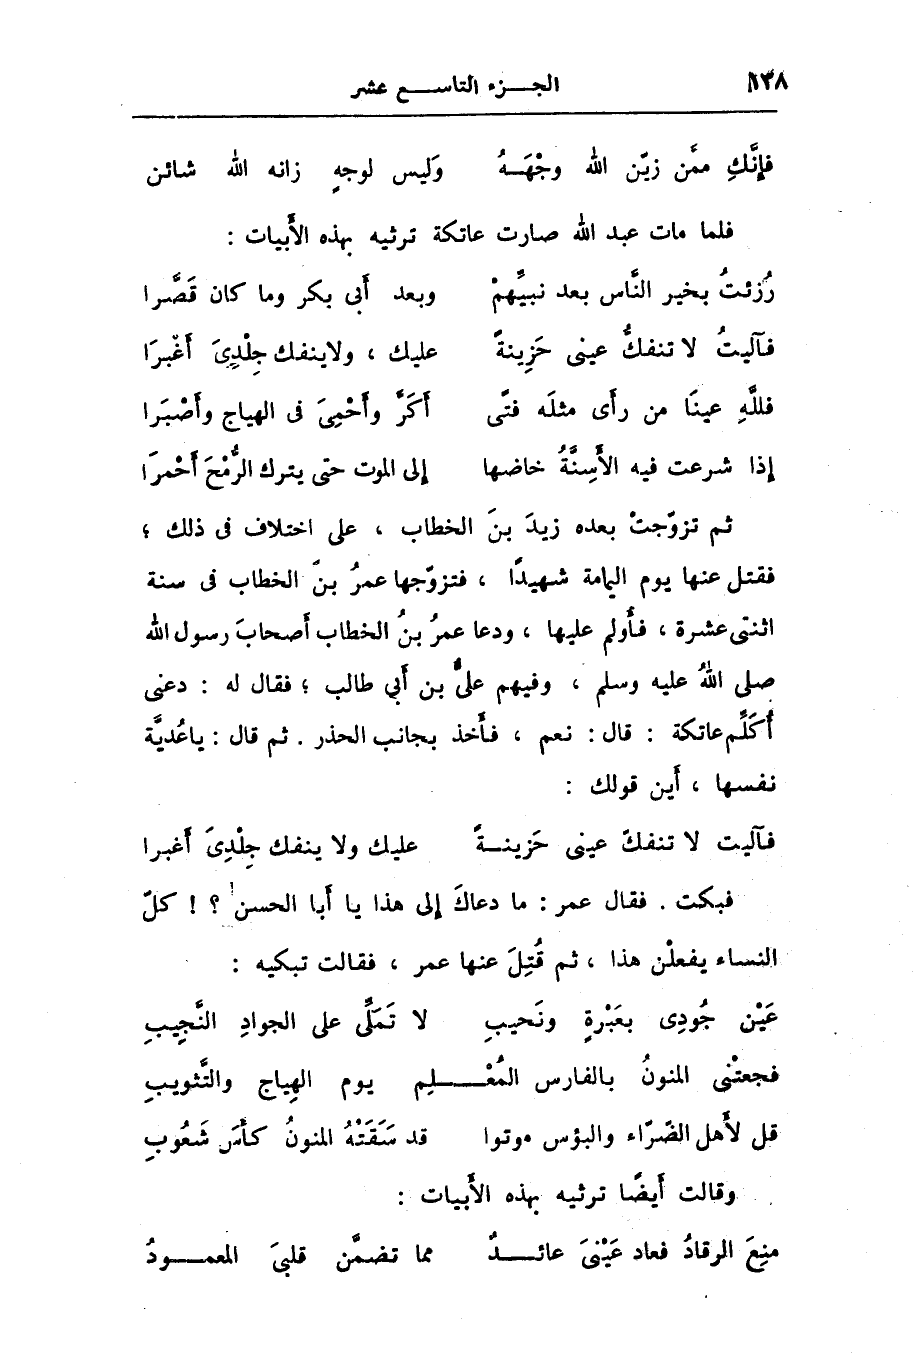 ١٣٨ الجزء التاسع عشر
فإنَّكِ ممَّن زيّن الله وجْهَهُ وَليس لوجهٍ زانه الله شائن
فلما مات عبد الله صارت عاتكة ترثيه بهذه الأَبيات :
رُزئتُ بخير النَّاس بعد نبيِّهمْ وبعد أَبى بكر وما كان قَصَّرا
فآليتُ لا تنفكُّ عينى حَزِينةً عليك ، ولاينفك جِلْدِىَ أَغْبرَا
فللَّهِ عينَا من رأَى مثلَه فتًى أَكَرَّ وأَحْمِىَ فى الهياج وأَصْبَرا
إذا شرعت فيه الأَسِنَّةُ خاضها إلى الموت حتى يترك الرُّمْحَ أَحْمرَا
ثم تزوّجتْ بعده زيدَ بنَ الخطاب ، على اختلاف فى ذلك ؛
فقتل عنها يوم اليمامة شهيدًا ، فتزوّجها عمرُ بنُ الخطاب فى سنة
اثنتى عشرة ، فأَولم عليها ، ودعا عمرُ بنُ الخطاب أَصحابَ رسول الله
صلى اللهُ عليه وسلم ، وفيهم علىُّ بن أَبي طالب ؛ فقال له : دعنى
أُكَلِّم عاتكة : قال : نعم ، فأَخذ بجانب الخدر . ثم قال : ياعُديَّة
نفسها ، أَين قولك :
فآليت لا تنفكّ عينى حَزينةً عليك ولا ينفك جِلْدِىَ أَغبرا
فبكت . فقال عمر : ما دعاكَ إلى هذا يا أَبا الحسن ؟ ! كلّ
النساء يفعلْن هذا ، ثم قُتِلَ عنها عمر ، فقالت تبكيه :
عَيْن جُودِى بعَبْرةٍ ونَحيبِ لا تَمَلِّى على الجوادِ النَّجِيبِ
فجعتْنى المنونُ بالفارس المُعْلِم يوم الهِياج والتَّثويبِ
قل لأَهل الضّرّاء والبؤس موتوا قد سَقَتْهُ المنونُ كأْسَ شَعُوبِ
وقالت أَيضًا ترثيه بهذه الأَبيات :
منِعَ الرقادُ فعاد عَيْنىَ عائدٌ مما تضمَّن قلبىَ المعمودُ